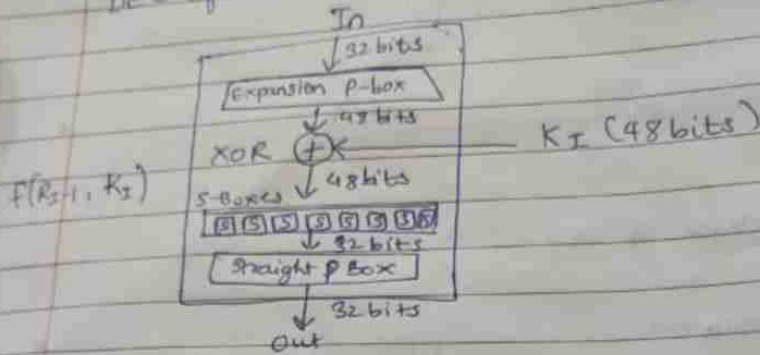 In
32 bits
Expansion P-box
48 bits
XOR + K_I (48 bits)
48 bits
f(R_I-1, K_I)
S-Boxes
S S S S S S S S
32 bits
Straight P Box
32 bits
Out